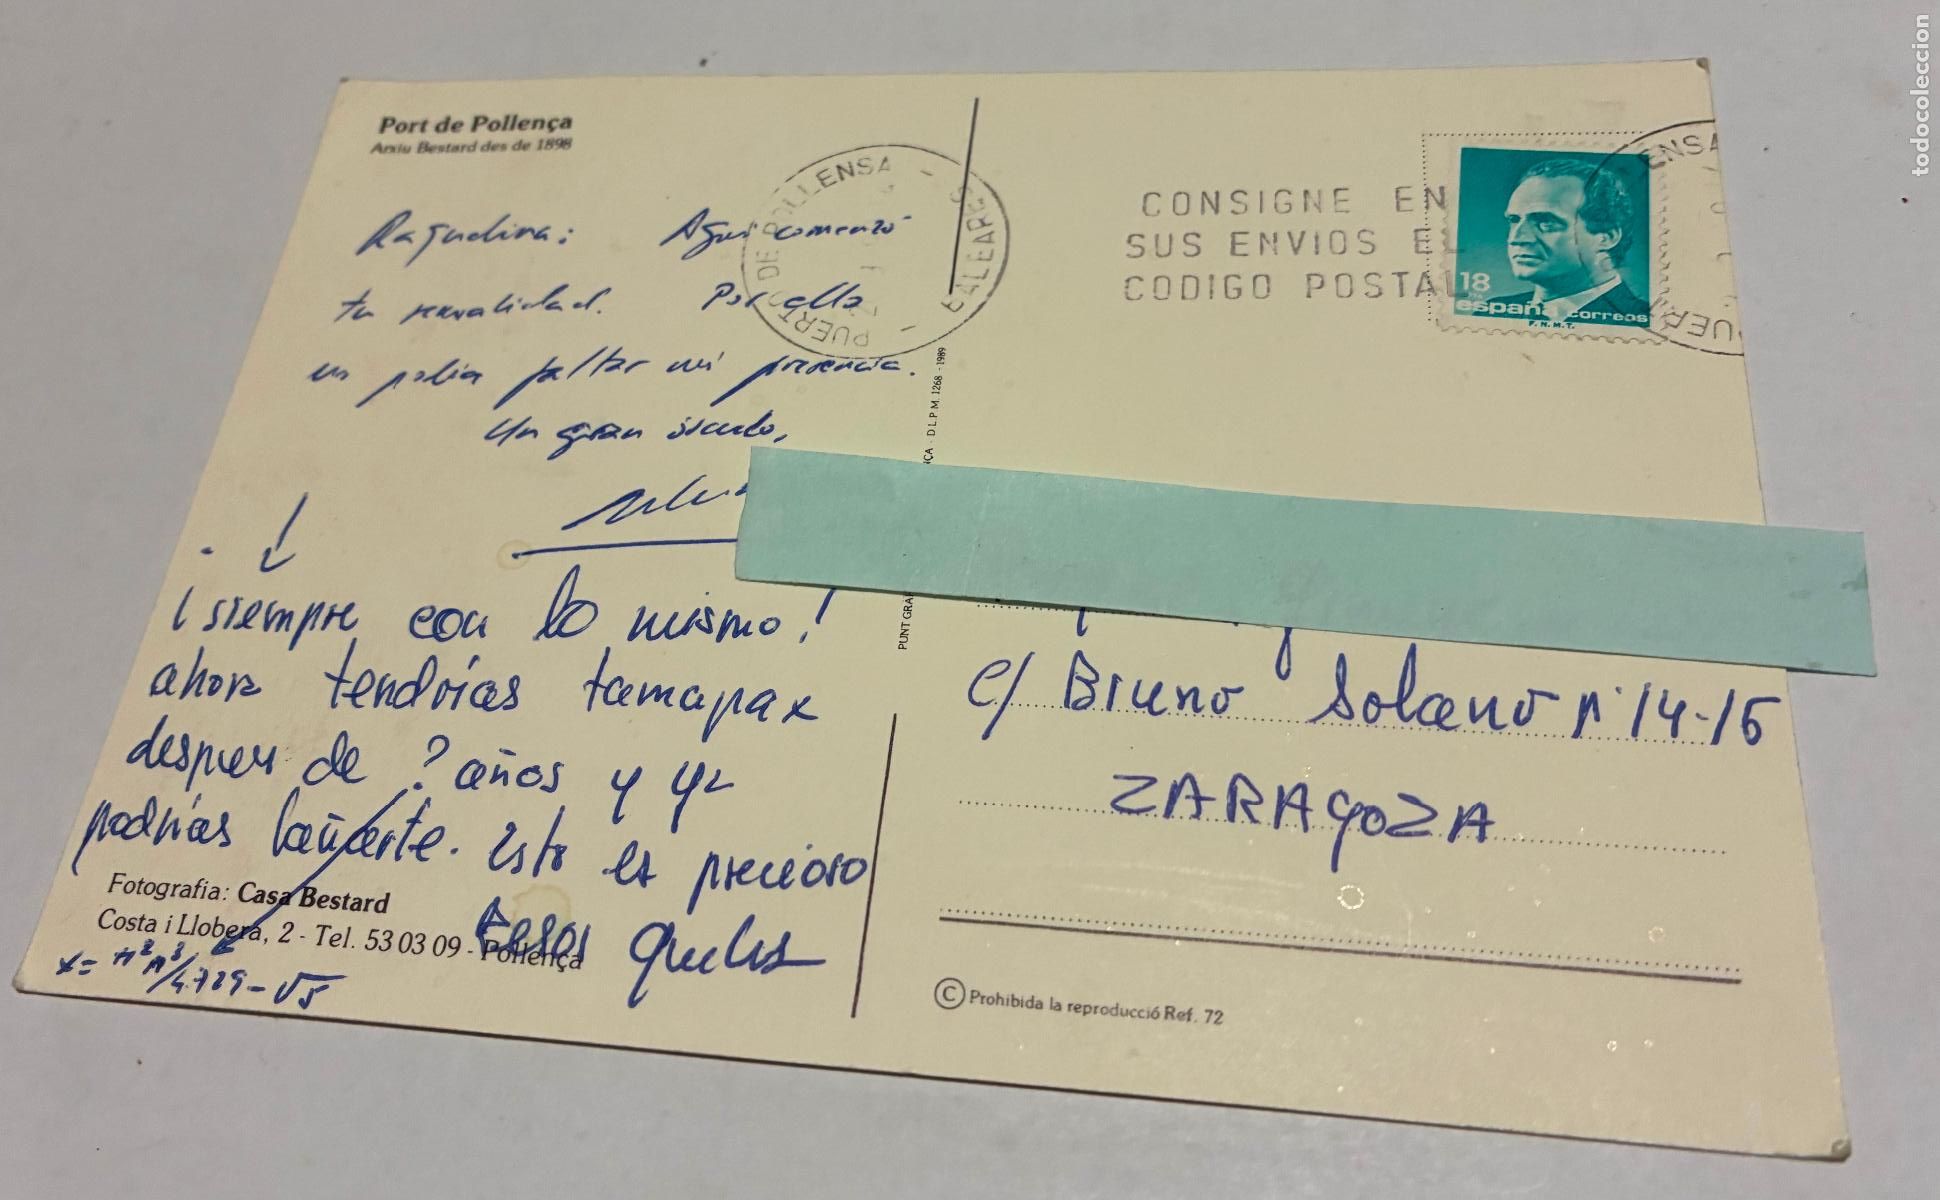 Port de Pollença
Arxiu Bestard des de 1898
Raquelina: Aquí comenzó
tu sexualidad. Por ello
no podía faltar mi presencia.
Un gran ósculo,
¡siempre con lo mismo!
ahora tendrías tamapax
despues de ? años y ya
podrías bañarte. Esto es precioso
Besos
Fotografia: Casa Bestard
Costa i Llobera, 2 - Tel. 53 03 09 - Pollença
PUERTO DE POLLENSA
BALEARES
CONSIGNE EN
SUS ENVIOS EL
CODIGO POSTAL
18
PTA
españa correos
F.N.M.T.
ENSA
PUER
D.L.P.M. 1268 - 1989
PUNT GRÀ
c/ Bruno Solano nº 14-16
ZARAgoZA
© Prohibida la reproducció Ref. 72
todocoleccion